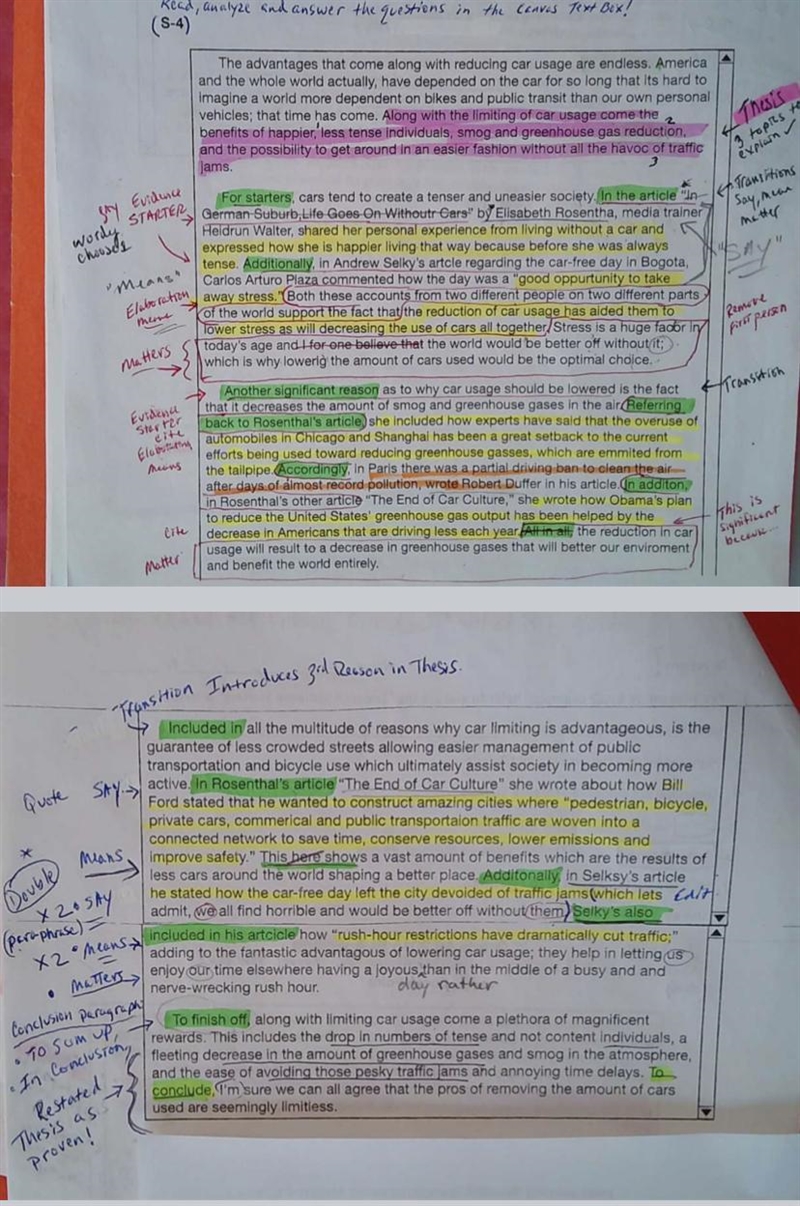 Read, analyze and answer the questions in the Canvas Text Box!
(S-4)
The advantages that come along with reducing car usage are endless. America
and the whole world actually, have depended on the car for so long that its hard to
imagine a world more dependent on bikes and public transit than our own personal
vehicles; that time has come. Along with the limiting of car usage come the
benefits of happier, less tense individuals, smog and greenhouse gas reduction,
and the possibility to get around in an easier fashion without all the havoc of traffic
jams.
1
2
3
Thesis
3 topics to
explain ✓
For starters, cars tend to create a tenser and uneasier society. In the article "In
German Suburb,Life Goes On Withoutr Cars" by Elisabeth Rosentha, media trainer
Heidrun Walter, shared her personal experience from living without a car and
expressed how she is happier living that way because before she was always
tense. Additionally, in Andrew Selky's artcle regarding the car-free day in Bogota,
Carlos Arturo Plaza commented how the day was a "good oppurtunity to take
away stress." Both these accounts from two different people on two different parts
of the world support the fact that the reduction of car usage has aided them to
lower stress as will decreasing the use of cars all together. Stress is a huge facor in
today's age and I for one believe that the world would be better off without it;
which is why lowerig the amount of cars used would be the optimal choice.
Say Evidence
STARTER
wordy
chooses
"Means"
Elaboration
means
Matters
Transitions
Say, mean
matter
"SAY"
Remove
first person
Another significant reason as to why car usage should be lowered is the fact
that it decreases the amount of smog and greenhouse gases in the air. Referring
back to Rosenthal's article, she included how experts have said that the overuse of
automobiles in Chicago and Shanghai has been a great setback to the current
efforts being used toward reducing greenhouse gasses, which are emmited from
the tailpipe. Accordingly, in Paris there was a partial driving ban to clean the air
after days of almost record pollution, wrote Robert Duffer in his article. In additon,
in Rosenthal's other article "The End of Car Culture," she wrote how Obama's plan
to reduce the United States' greenhouse gas output has been helped by the
decrease in Americans that are driving less each year. All in all, the reduction in car
usage will result to a decrease in greenhouse gases that will better our enviroment
and benefit the world entirely.
Evidence
Starter
cite
Elaborating
Means
cite
Matter
Transition
This is
significant
because...
Transition Introduces 3rd Reason in Thesis.
Included in all the multitude of reasons why car limiting is advantageous, is the
guarantee of less crowded streets allowing easier management of public
transportation and bicycle use which ultimately assist society in becoming more
active. In Rosenthal's article "The End of Car Culture" she wrote about how Bill
Ford stated that he wanted to construct amazing cities where "pedestrian, bicycle,
private cars, commerical and public transportaion traffic are woven into a
connected network to save time, conserve resources, lower emissions and
improve safety." This here shows a vast amount of benefits which are the results of
less cars around the world shaping a better place. Additonally, in Selksy's article
he stated how the car-free day left the city devoided of traffic jams (which lets
admit, we all find horrible and would be better off without them) Selky's also
included in his artcicle how "rush-hour restrictions have dramatically cut traffic;"
adding to the fantastic advantagous of lowering car usage; they help in letting us
enjoy our time elsewhere having a joyous than in the middle of a busy and and
nerve-wrecking rush hour.
day rather
Quote SAY
Means
*
Double
x 2 • SAY
(paraphrase)
x 2 • Means
• Matters
Edit
To finish off, along with limiting car usage come a plethora of magnificent
rewards. This includes the drop in numbers of tense and not content individuals, a
fleeting decrease in the amount of greenhouse gases and smog in the atmosphere,
and the ease of avoiding those pesky traffic jams and annoying time delays. To
conclude, I'm sure we can all agree that the pros of removing the amount of cars
used are seemingly limitless.
Conclusion paragraph
• To sum up,
• In Conclusion,
Restated
Thesis as
proven!